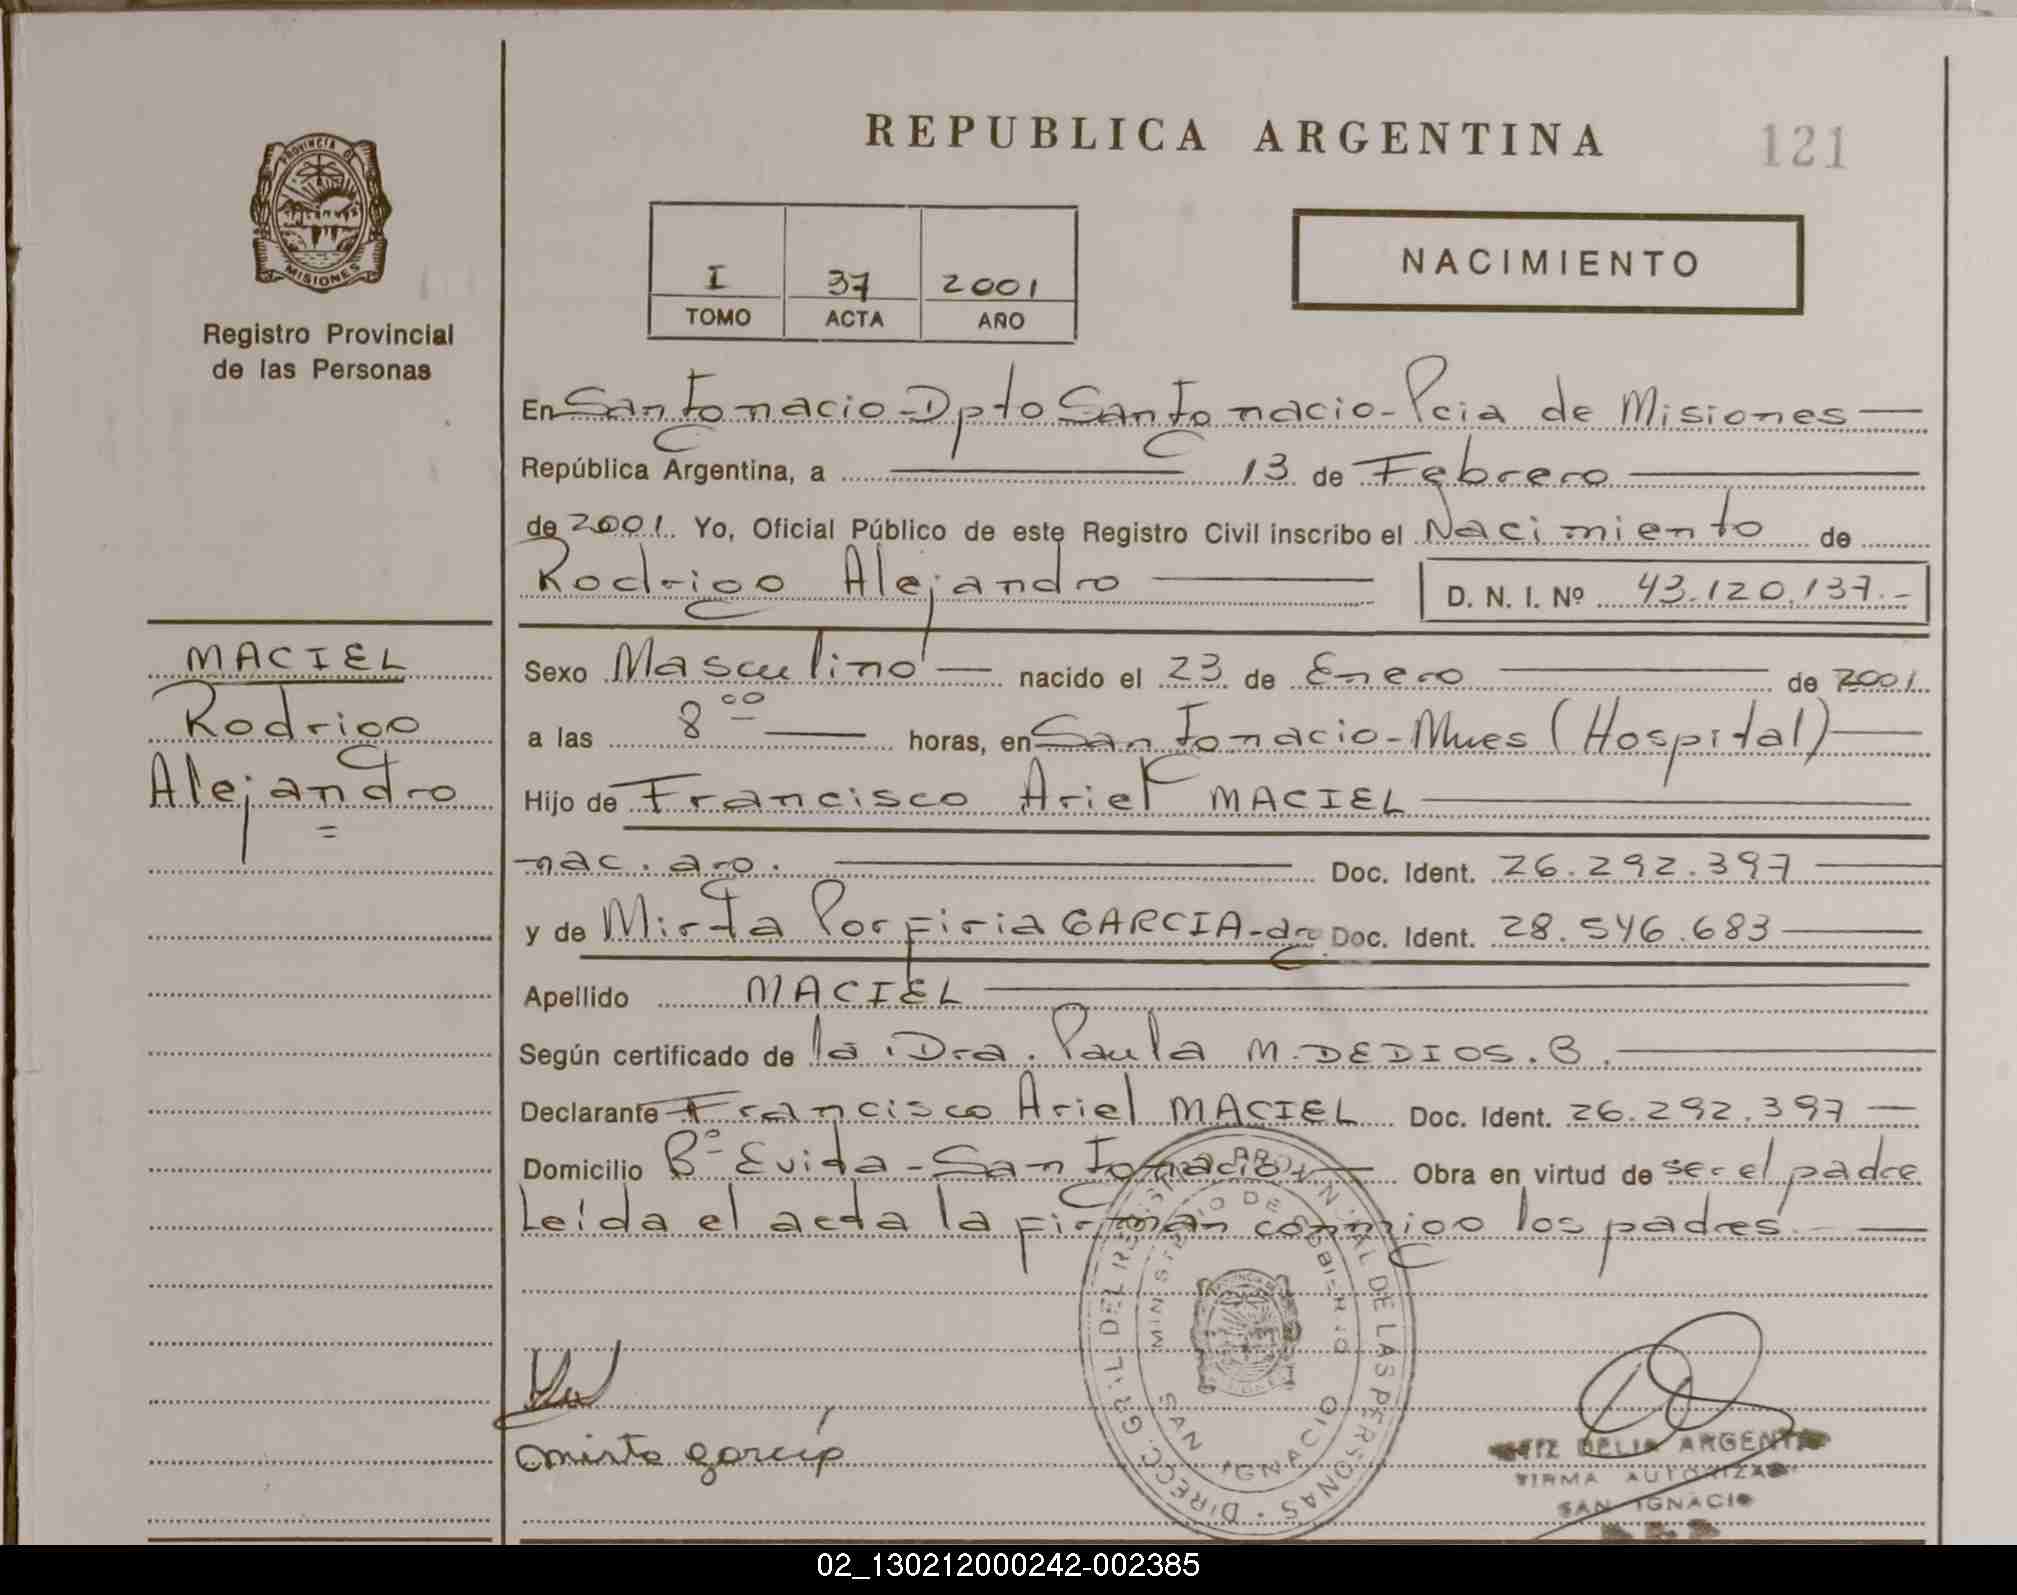 REPUBLICA ARGENTINA
121
PROVINCIA DE
MISIONES
Registro Provincial
de las Personas
I 37 2001
TOMO ACTA AÑO
NACIMIENTO
En San Ignacio - Dpto San Ignacio - Pcia de Misiones
República Argentina, a 13 de Febrero
de 2001. Yo, Oficial Público de este Registro Civil inscribo el Nacimiento de
Rodrigo Alejandro D. N. I. Nº 43.120.137.-
MACIEL
Rodrigo
Alejandro
=
Sexo Masculino nacido el 23 de Enero de 2001.
a las 8 00 horas, en San Ignacio - Mnes (Hospital)
Hijo de Francisco Ariel MACIEL
nac. arg. Doc. Ident. 26.292.397
y de Mirta Porfiria GARCIA - arg. Doc. Ident. 28.546.683
Apellido MACIEL
Según certificado de la Dra. Paula M. DEDIOS. B.
Declarante Francisco Ariel MACIEL Doc. Ident. 26.292.397
Domicilio Bº Evida - San Ignacio Obra en virtud de ser el padre
Leída el acta la firman conmigo los padres
DIRECC. GRAL DEL REGISTRO PROVINCIAL DE LAS PERSONAS
MINISTERIO DE GOBIERNO
SAN IGNACIO
mirta garcia
DELIA ARGENTINA
FIRMA AUTORIZADA
SAN IGNACIO
02_130212000242-002385